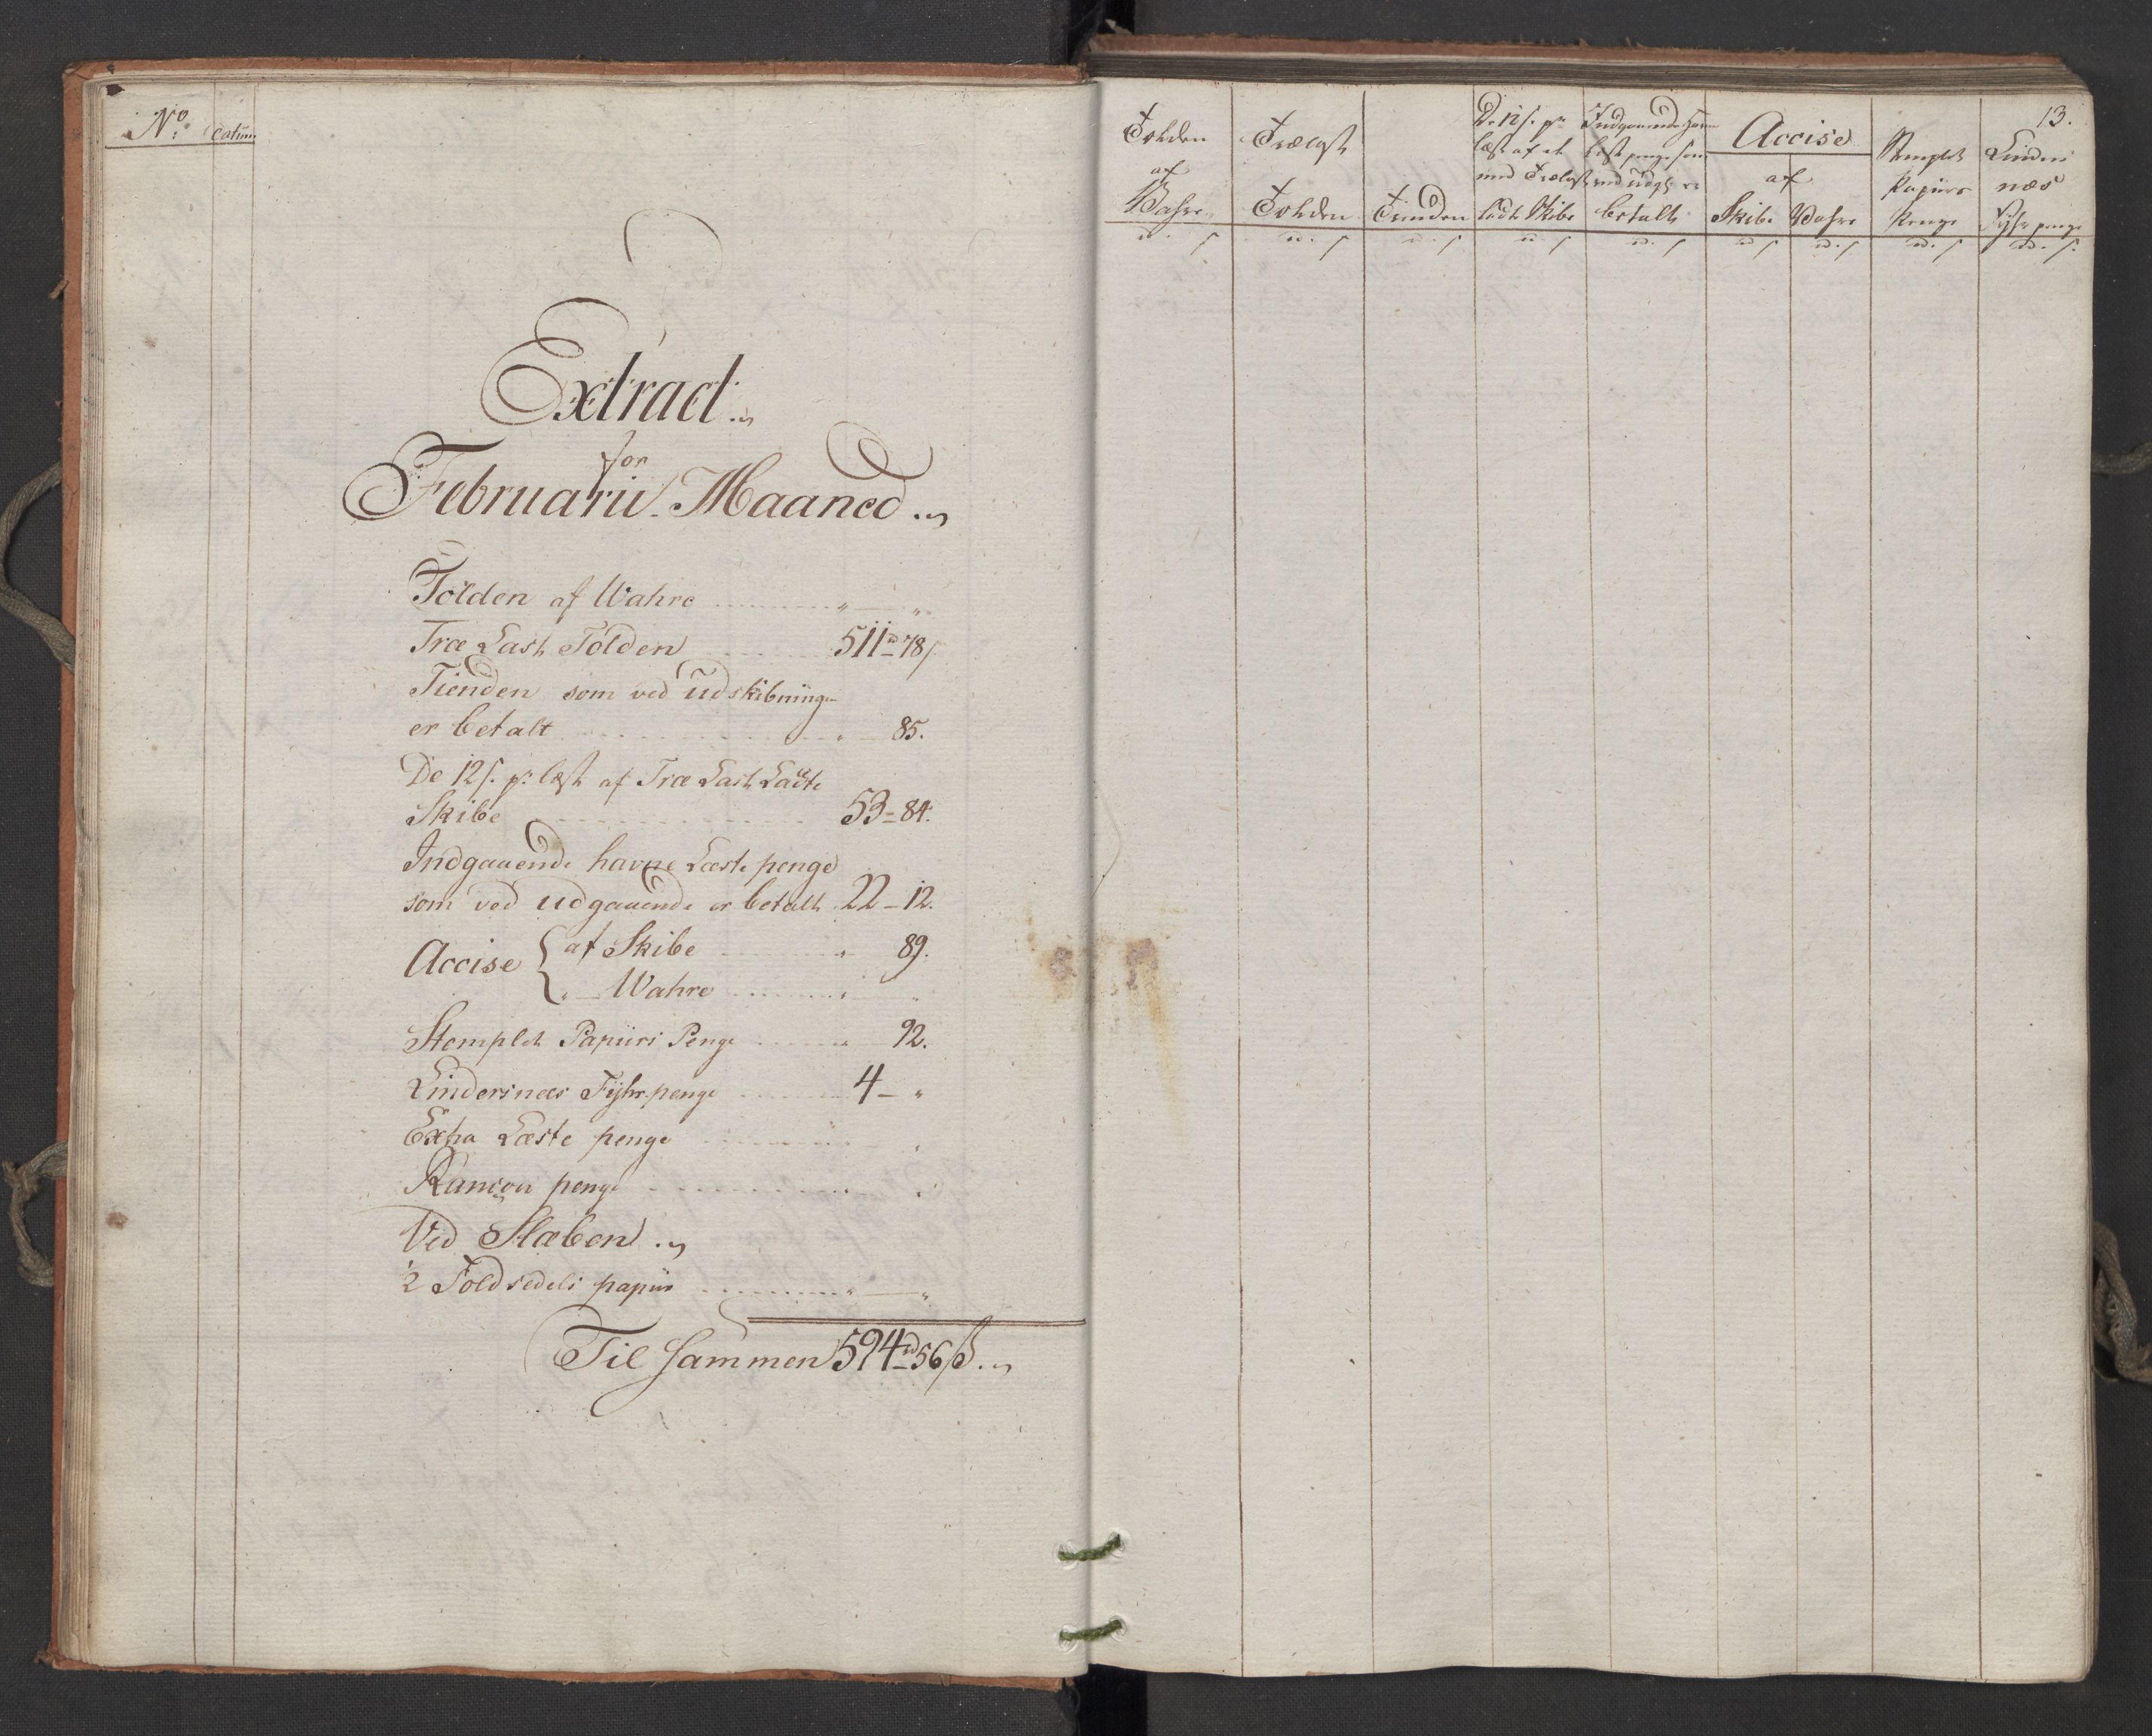 No. Datum
Extract
for
Februarii Maaned
Tolden af Wahre " — "
Træ Last Tolden 511 rd 78 s
Tienden som ved Udskibning
er betalt " 85.
De 12 s. pr. læst af Træ Last Ladte
Skibe 53 - 84.
Indgaaende havne Læste penge
som ved udgaaende er betalt 22 - 12.
Accise { af Skibe " 89.
" — Wahre " "
Stemplet Papiirs Penge " 92.
Lindesnæs Fyhr penge 4 - "
Extra Læste penge "
Rançon penge "
Ved Slæben
2 Toldsedels papiir " — "
Til sammen 594 rd 56 ß
13.
Tolden af Wahre
Trælast Tolden
Tienden
De 12 s. pr. læst af et med Trælast ladt Skibe
Indgaaende Havne læste penge som ved udg. er betalt
Accise
af
Skibe Wahre
Stemplet Papiirs Penge
Lindes næs Fyhr penge
rd. s rd. s rd. s rd. s rd. s rd s rd. s rd. s rd. s.